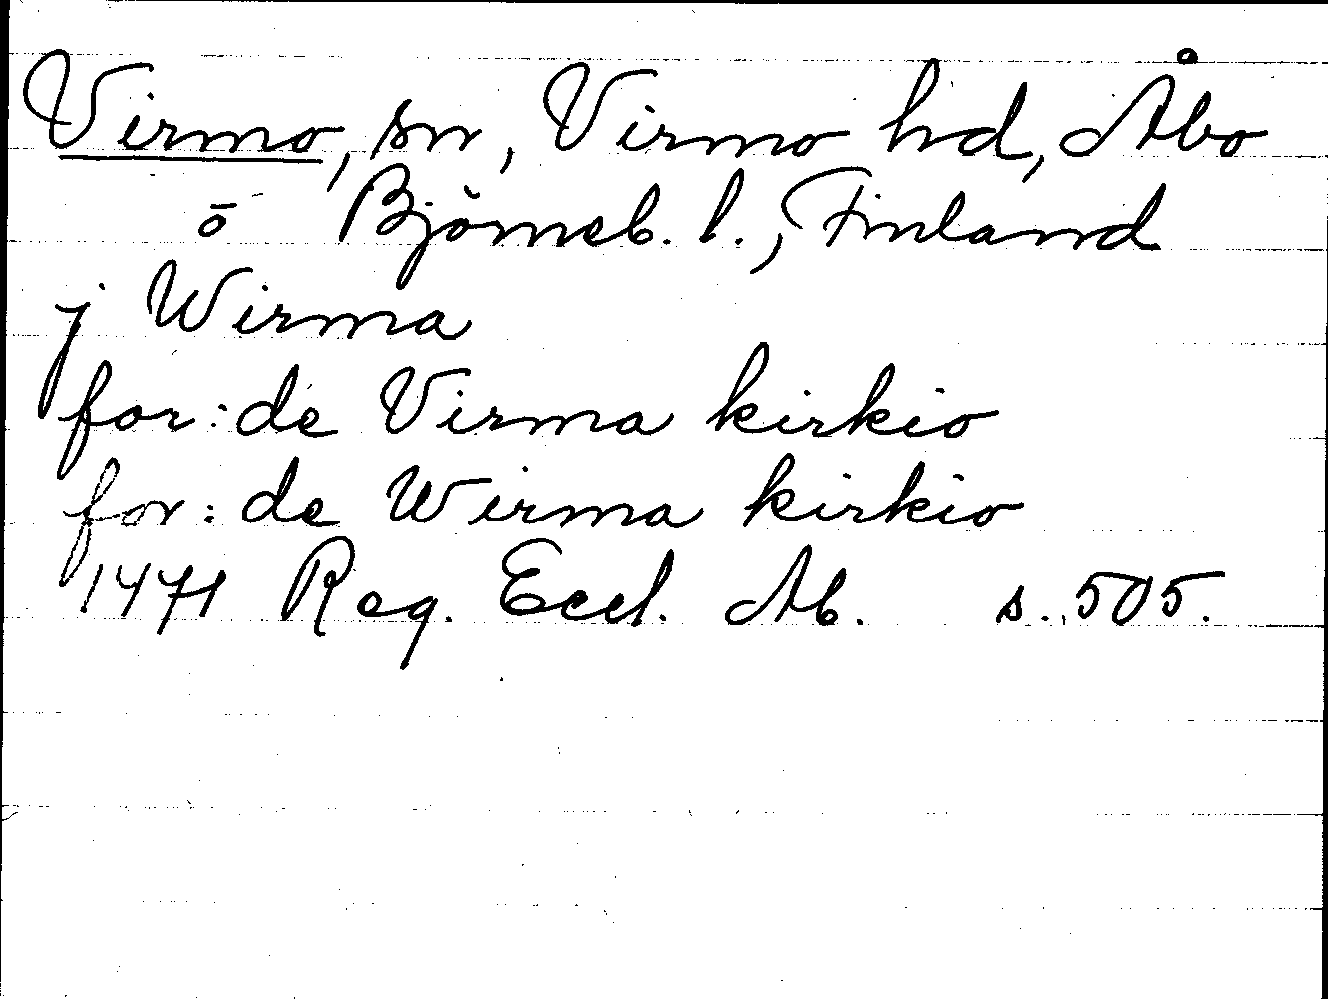 Virmo, sn, Virmo hd, Åbo
o Björneb. l., Finland
j Wirma
for: de Virma kirkio
for: de Wirma kirkio
1471 Reg. Eccl. Ab. s. 505.